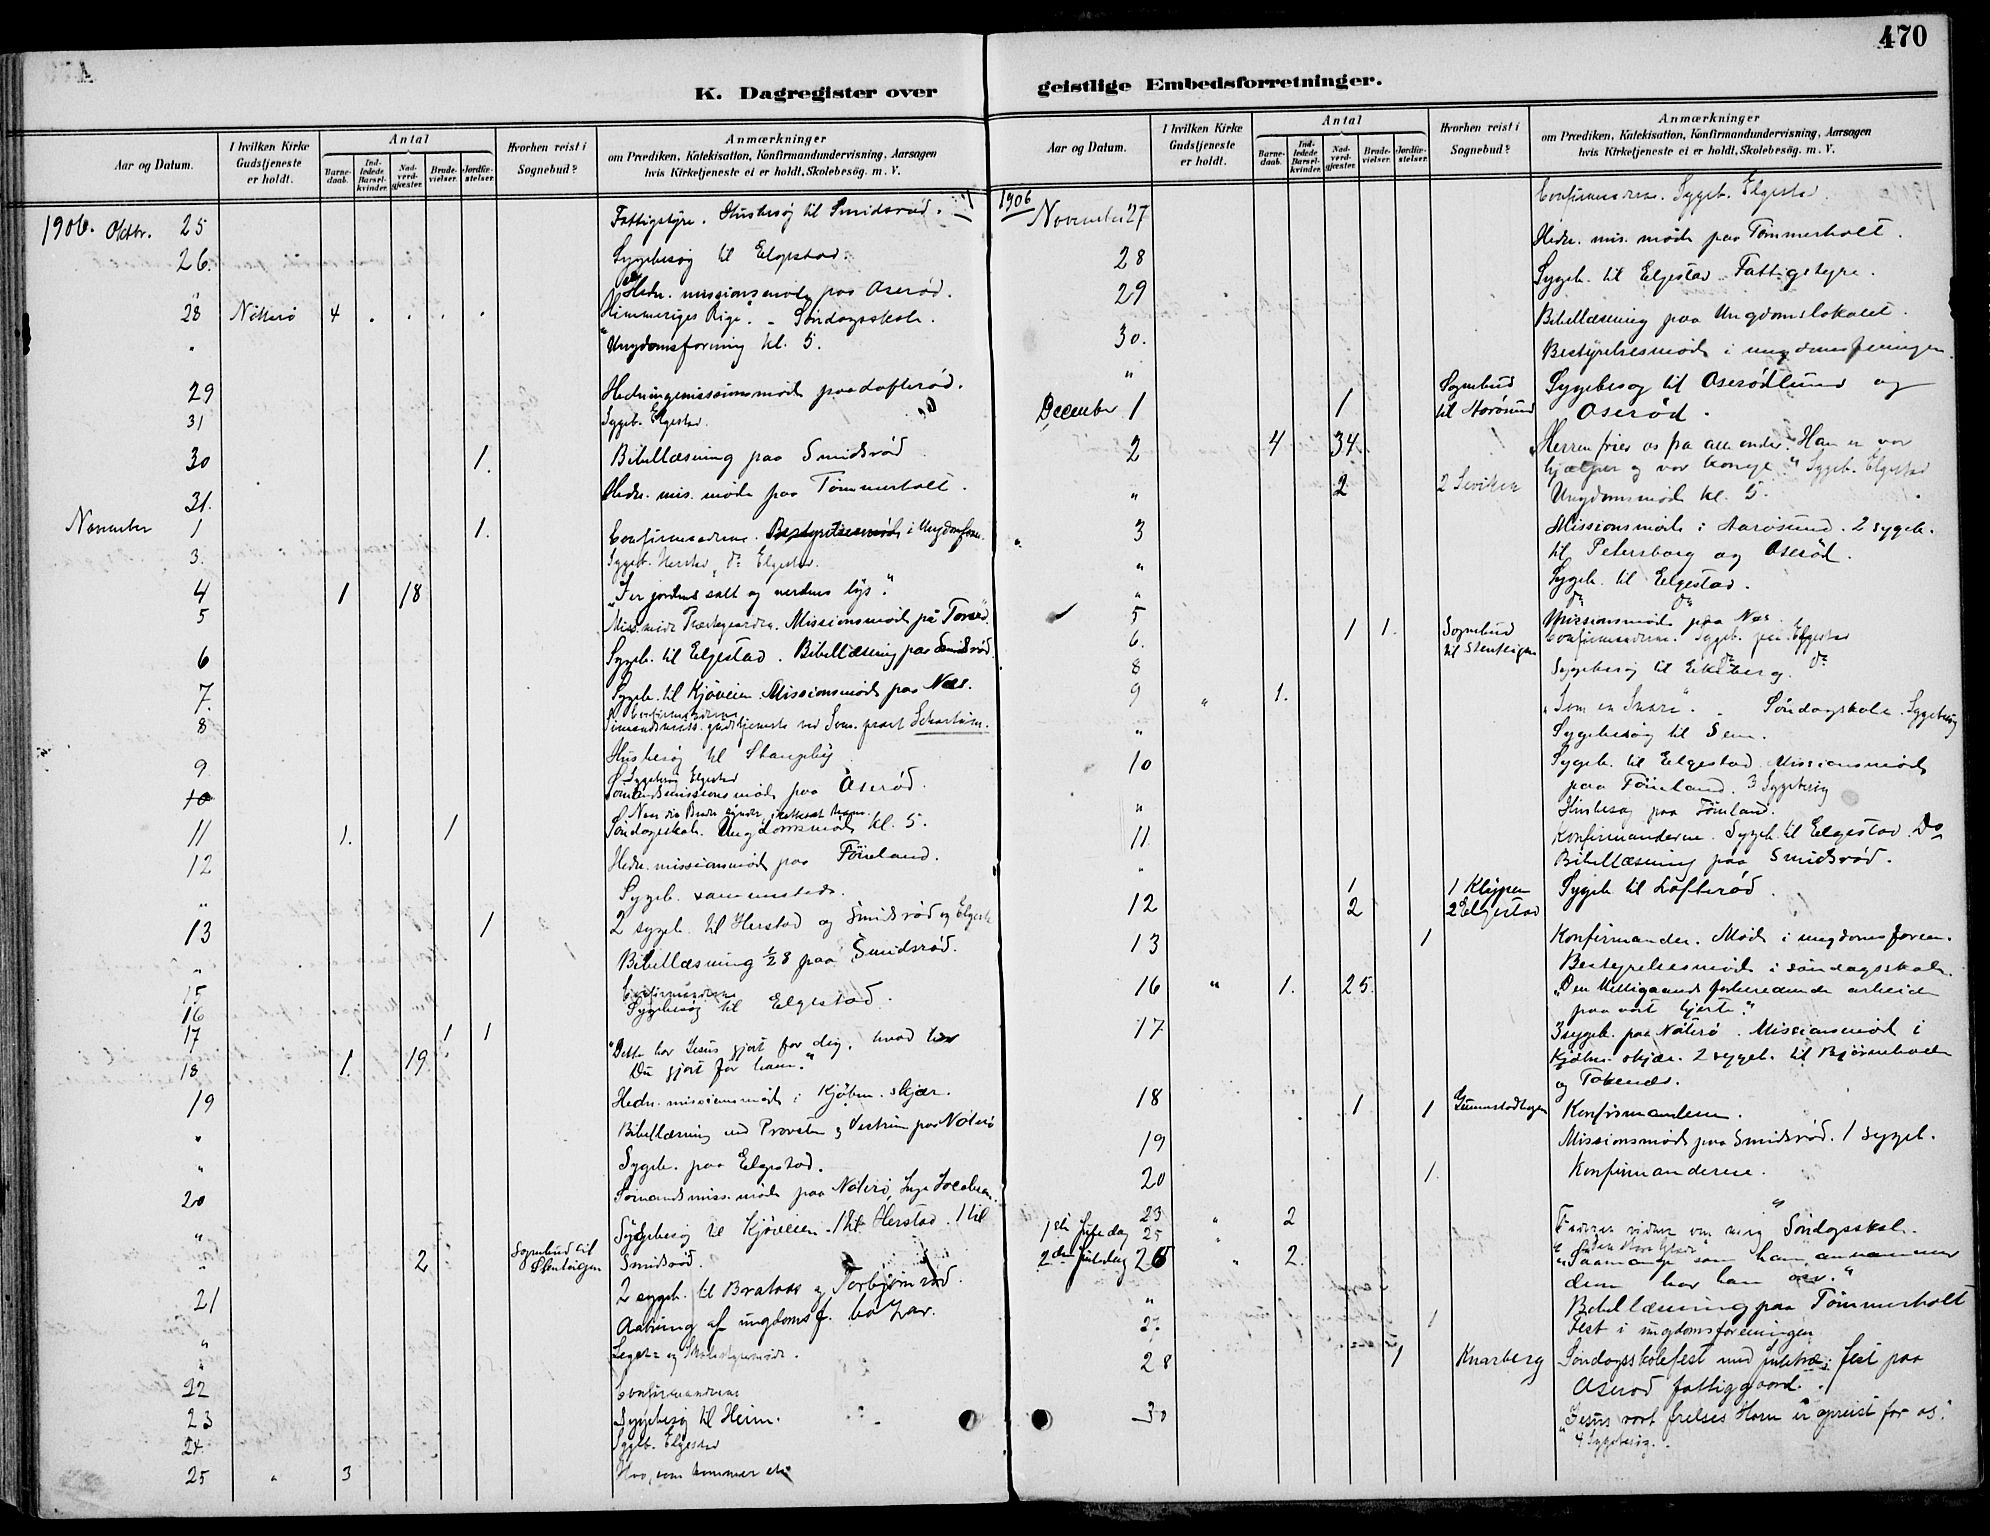 470
K. Dagregister over
geistlige Embedsforretninger.
Aar og Datum.
I hvilken Kirke Gudstjeneste er holdt.
Antal
Barne-daab.
Ind-ledede Barsel-kvinder.
Nad-verd-gjæster.
Brude-vielser.
Jordfæ-stelser.
Hvorhen reist i Sognebud?
Anmærkninger
om Prædiken, Katekisation, Konfirmandundervisning, Aarsagen
hvis Kirketjeneste ei er holdt, Skolebesøg. m. V.
1906. Oktbr. 25 Fattigstyre. Husbesøg til Smidsrød.
26. Sygebesøg til Elgestad.
Hedn. missionsmøde paa Oserød.
28 Nötterö 4 Himmeriges Rige". - Søndagsskole.
" Ungdomsforening kl. 5.
29 Hedningemissionsmøde paa Lofterød.
31 Sygeb. Elgestad.
30 1. Bibellæsning paa Smidsrød
31. Hedn. mis. møde paa Tømmerholt.
November 1 1. Confirmanderne. Bestyrelsesmøde i Ungdomsforen.
3. Sygeb. Herstad, do Elgestad.
4 1 18 "I er jordens salt og verdens lys".
5 Missionsmøde på Torød.
6 Sygeb. til Elgestad. Bibellæsning paa Smidsrød.
7. Sygeb. til Kjøveien. Missionsmøde paa Næs.
8 Confirmanderne
Sømandsmiss. gudstjeneste ved Søm. præst
Husbesøg til Stangeby
9 Sygebesøg Elgestad
10 Sømandsmissionsmøde paa Oserød.
11 1. 1 Søndagsskole. Ungdomsmøde kl. 5.
12 Hedn. missionsmøde paa Föinland.
" Sygeb. sammesteds.
13 1 2 sygeb. til Herstad og Smidsrød og Elgest.
" Bibellæsning 1/2 8 paa Smidsrød.
15 Confirmanderne
16 Sygebesøg til Elgestad.
17 1 1 "Dette har Jesus gjort for dig, hvad har
18 1. 19 Du gjort for ham."
19 Hedn. missionsmøde i Kjøbm. skjær.
" Bibellæsning ved Provsten og Vestrim paa Nøterø
" Sygeb. paa Elgestad.
20 Sømandsmiss. møde paa Nøterø, Jacobsen.
" Sygebesøg til Kjøveien. 1 til Herstad. 1 til
" 2 Sognebud til Stenteigen Smidsrød.
21 2 sygeb. til Brataas og Torbjørnrød.
" Aabning af ungdomsf. bazar.
" Skolestyremøde.
22 Confirmanderne
23 Sygebesøg til Heim.
24 Sygeb. Elgestad
25 " 3 Hvo, som kommer etc
Aar og Datum.
I hvilken Kirke Gudstjeneste er holdt.
Antal
Barne-daab.
Ind-ledede Barsel-kvinder.
Nad-verd-gjæster.
Brude-vielser.
Jordfæ-stelser.
Hvorhen reist i Sognebud?
Anmærkninger
om Prædiken, Katekisation, Konfirmandundervisning, Aarsagen
hvis Kirketjeneste ei er holdt, Skolebesøg. m. V.
1906
November 27 Confirmanderne. Sygeb. Elgestad
Hedn. mis. møde paa Tømmerholt.
28 Sygeb. til Elgestad. Fattigstyre.
29 Bibellæsning paa Ungdomslokalet.
30. Bestyrelsesmøde i ungdomsforeningen.
" Sygebesøg til Oserødlund og
December 1 1 Sognebud til Aarøsund Oserød.
2 4 34. "Herren frier os fra alle onder. Han er vor
hjælper og vor konge." Sygeb. Elgestad
" 2 Ungdomsmøde kl. 5.
3 Missionsmøde i Aarøsund. 2 sygeb.
til Petersborg og Oserød.
" Sygeb. til Elgestad.
" do do
5 Missionsmøde paa Næs.
6. 1 1. Sognebud til Stenteigen Confirmanderne. Sygeb. paa Elgestad
8 Sygebesøg til Ekeberg. do
9 " 1. "Som en Snare". - Søndagsskole. Sygebesøg
" Sygebesøg til Sem.
10 Sygeb. til Elgestad. Missionsmøde
paa Föinland. 3 Sygebesøg
" Husbesøg paa Föinland.
11. Konfirmanderne. Sygeb. til Elgestad. Do
" Bibellæsning paa Smidsrød.
12 1 2 1 Klyppen 2 Elgestad Sygeb. til Lofterød
13 1 Konfirmander. Møde i ungdomsforen.
Bestyrelsesmøde i søndagsskole.
16 " 1. 25. "Den Helligaands forberedende arbeide
paa vort hjerte."
17 3 sygeb. paa Nøterø. Missionsmøde i
Kjøbm. skjær. 2 sygeb. til Bjørneboden
og Tokenes.
18 1 1 Konfirmanderne.
19 Missionsmøde paa Smidsrød. 1 sygeb.
20 1. Konfirmanderne.
23 " 2 Søndagsskole.
1ste Juledag 25 "
2den Juledag 26 " 2. "Saamange som ham annammer
dem har han
" Bibellæsning paa Tømmerholt
27. 1 Fest i ungdomsforeningen
28 1 Knarberg Søndagsskolefest med juletræ; fest paa
Oserød fattiggaard.
30 "Jesus vort frelses Horn er opreist for os."
4 Sygebesøg.